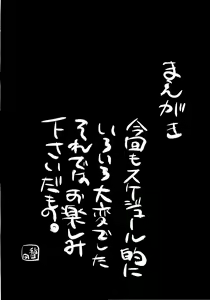 まえがき
今回もスケジュール的に
いろいろ大変でした
それではお楽しみ
下さいだます。